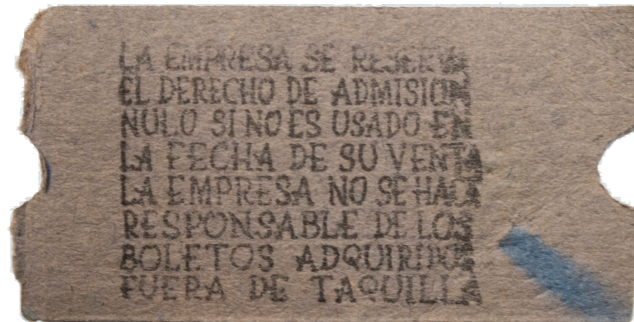 LA EMPRESA SE RESERVA
EL DERECHO DE ADMISION
NULO SI NO ES USADO EN
LA FECHA DE SU VENTA
LA EMPRESA NO SE HACE
RESPONSABLE DE LOS
BOLETOS ADQUIRIDOS
FUERA DE TAQUILLA